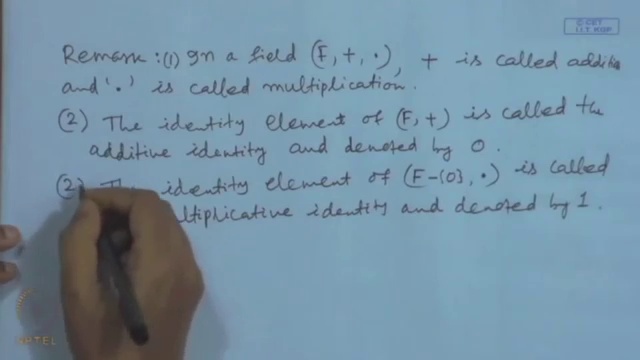 © CET
I.I.T. KGP
Remark : (1) In a field (F, +, •), + is called additio
and '•' is called multiplication.
(2) The identity element of (F, +) is called the
additive identity and denoted by 0.
(2) identity element of (F-{0}, •) is called
ultiplicative identity and denoted by 1.
NPTEL